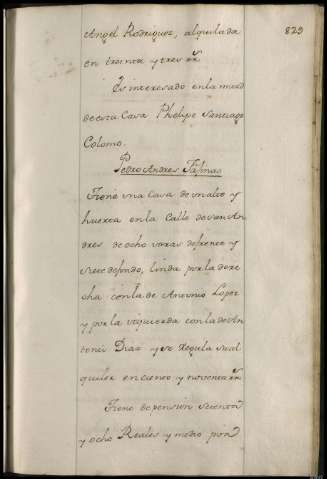 829
Angel Rodriguez, alquilada
en treinta y tres rs.
Es interesado en la mitad
de esta Casa Phelipe Santiago
Colomo.
Pedro Andres Salinas
Tiene una Casa de un alto y
huerta en la Calle de San An
dres de ocho varas de frente y
siete de fondo, linda por la dere
cha con la de Antonio Lopez
y por la izquierda con la de An
tonio Diaz y se regula su al
quiler en ciento y noventa rs.
Tiene de pension setenta
y ocho Reales y medio por